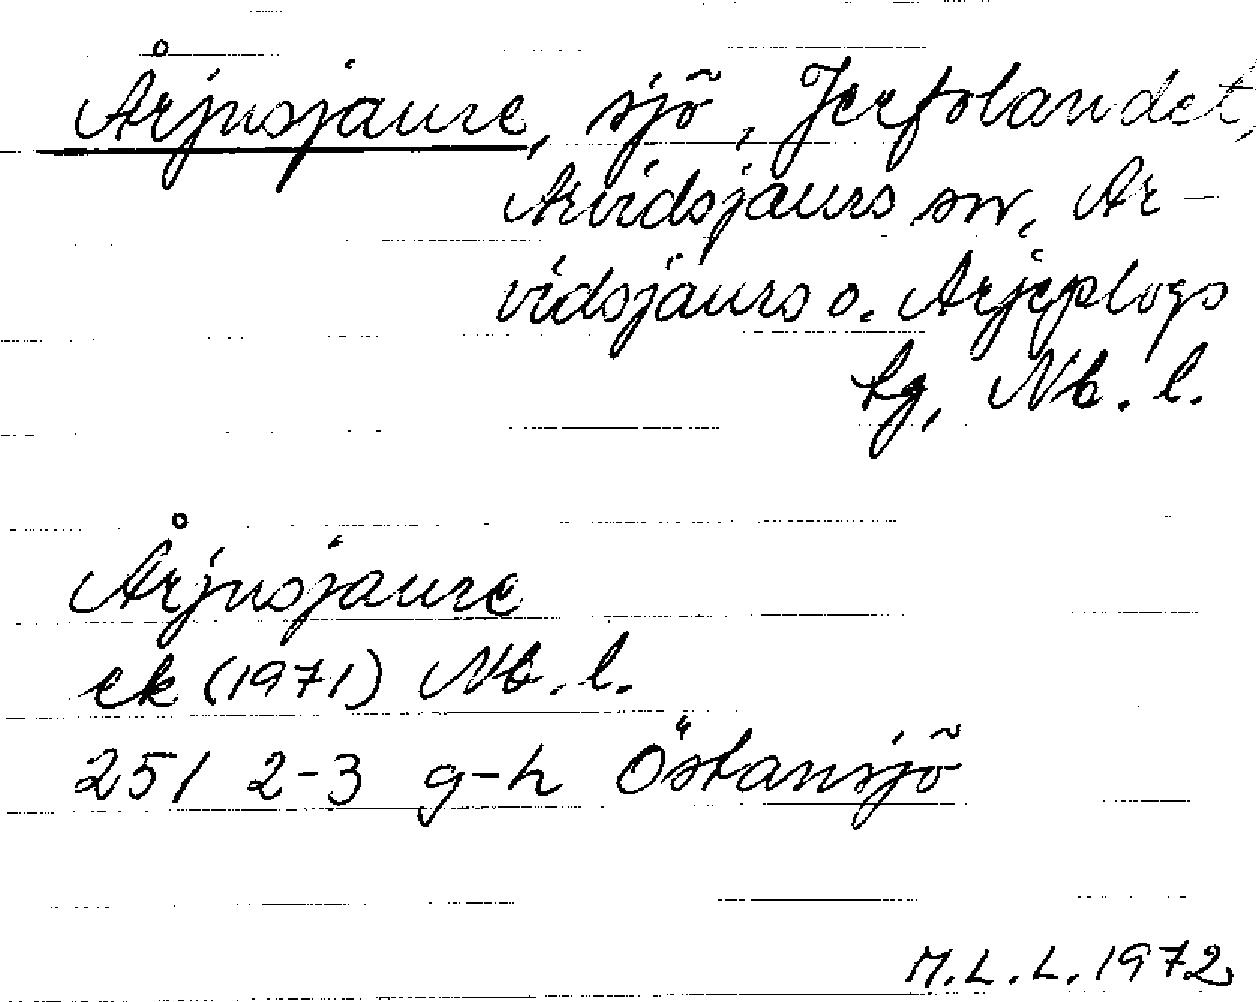 Årjusjaure, sjö, Jerfolandet,
Arvidsjaurs sn, Ar-
vidsjaurs o. Arjeplogs
tg, Nb. l.
Årjusjaure
ek (1971) Nb. l.
251 2-3 g-h Östansjö
M.L.L. 1972